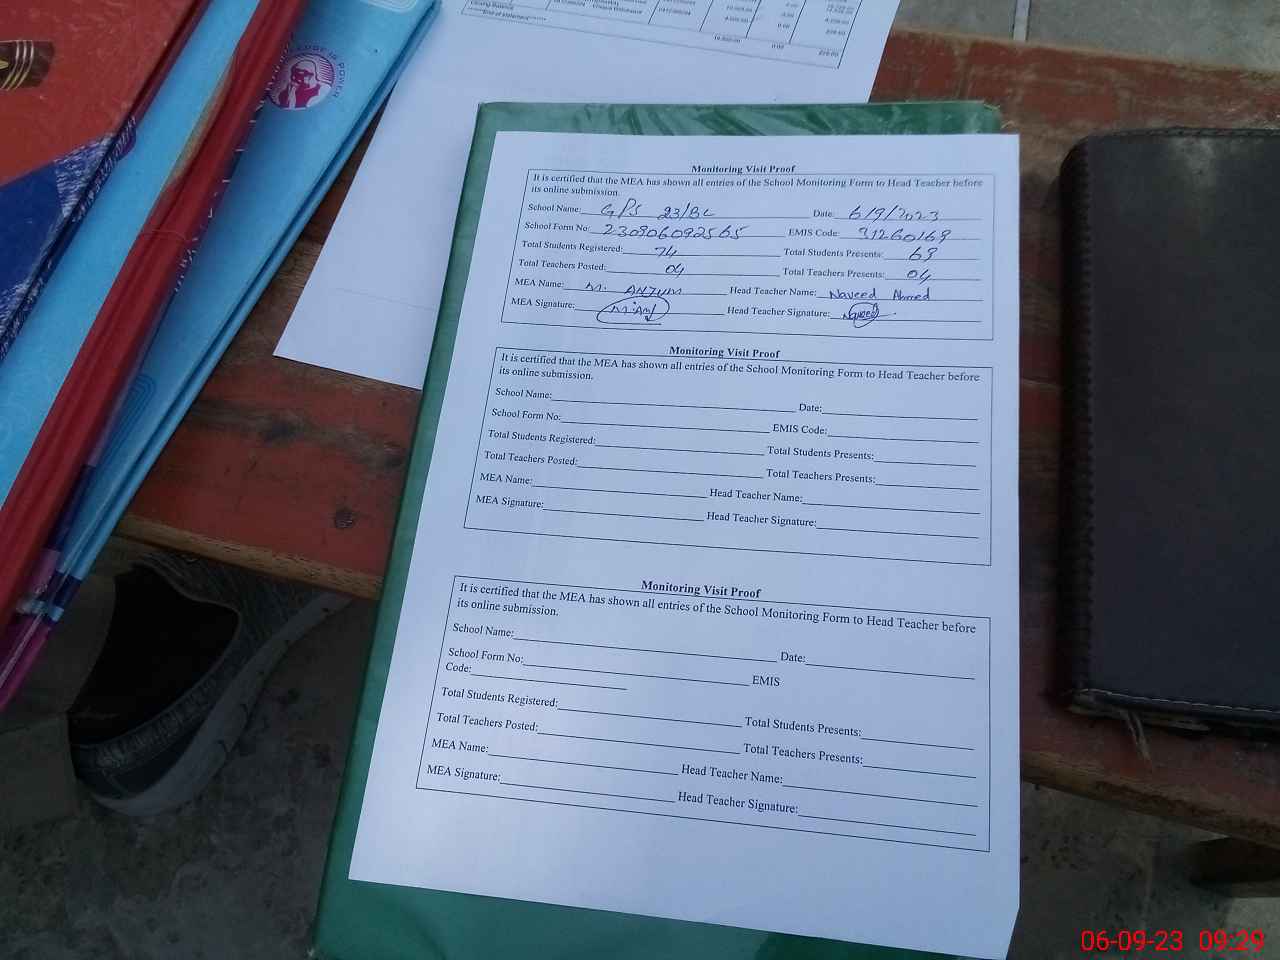 CODE IS POWER
Closing Balance
******End of Statement******
0.00
0.00
Monitoring Visit Proof
It is certified that the MEA has shown all entries of the School Monitoring Form to Head Teacher before
its online submission.
School Name: GPS 23/BC Date: 6/9/2023
School Form No: 230906092565 EMIS Code: 31260169
Total Students Registered: 74 Total Students Presents: 69
Total Teachers Posted: 04 Total Teachers Presents: 04
MEA Name: M. ANJUM Head Teacher Name: Naveed Ahmed
MEA Signature: Head Teacher Signature: Naveed
Monitoring Visit Proof
It is certified that the MEA has shown all entries of the School Monitoring Form to Head Teacher before
its online submission.
School Name: Date:
School Form No: EMIS Code:
Total Students Registered: Total Students Presents:
Total Teachers Posted: Total Teachers Presents:
MEA Name: Head Teacher Name:
MEA Signature: Head Teacher Signature:
Monitoring Visit Proof
It is certified that the MEA has shown all entries of the School Monitoring Form to Head Teacher before
its online submission.
School Name: Date:
School Form No: EMIS
Code:
Total Students Registered: Total Students Presents:
Total Teachers Posted: Total Teachers Presents:
MEA Name: Head Teacher Name:
MEA Signature: Head Teacher Signature:
06-09-23 09:29